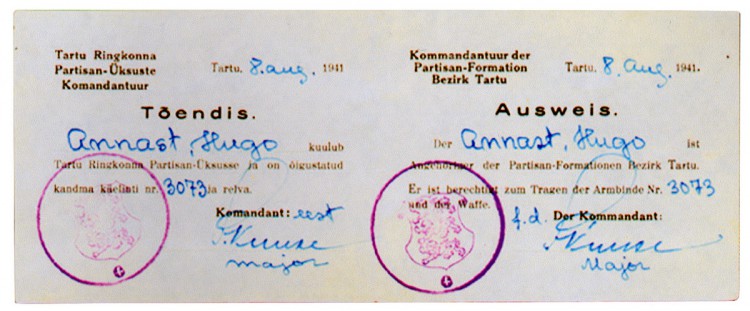 Tartu Ringkonna
Partisan-Üksuste
Komandantuur
Tartu, 8. aug. 1941
Tõendis.
Annast, Hugo kuulub
Tartu Ringkonna Partisan-Üksusse ja on õigustatud
kandma käelinti nr. 3073 ja relva.
Komandant: eest
major
Kommandantuur der
Partisan-Formation
Bezirk Tartu
Tartu, 8. Aug. 1941.
Ausweis.
Der Annast, Hugo ist
Angehöriger der Partisan-Formationen Bezirk Tartu.
Er ist berechtigt zum Tragen der Armbinde Nr. 3073
und der Waffe.
f.d. Der Kommandant:
Major